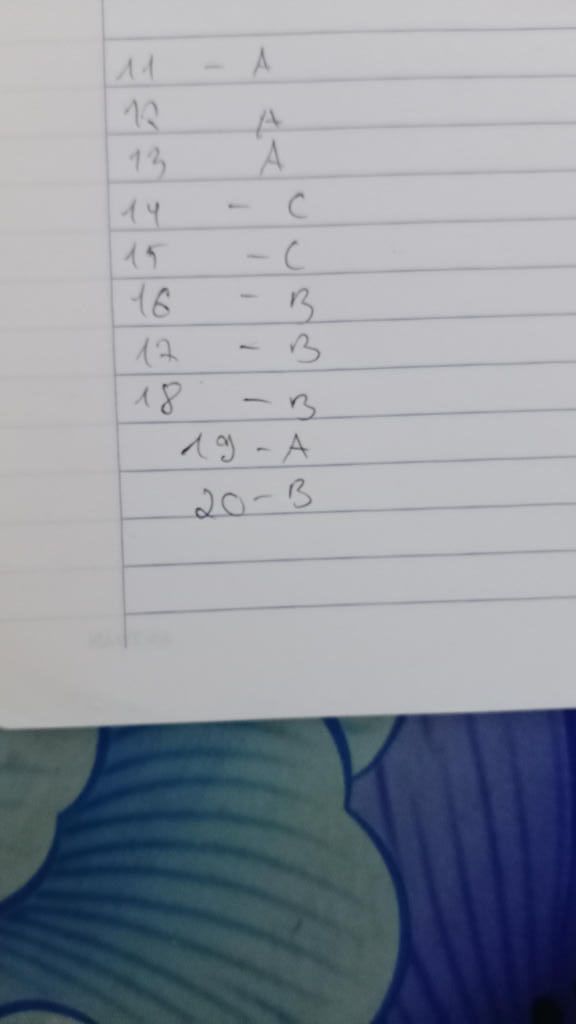 11 - A
12 A
13 A
14 - C
15 - C
16 - B
17 - B
18 - B
19 - A
20 - B